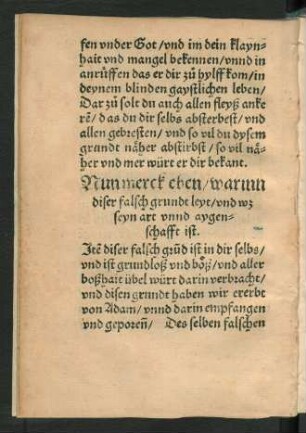 fen vnder Got/vnd im dein klayn-
hait vnd mangel bekennen/vnnd in
anrůffen das er dir zů hylff kom/in
deynem blinden gaystlichen leben/
Dar zů solt du auch allen fleyß anke
rē/das du dir selbs absterbest/vnd
allen gebresten/vnd so vil du dysem
grundt näher abstirbst/so vil nä-
her vnd mer würt er dir bekant.
Nun merck eben/warum
diser falsch grundt leyt/vnd wz
seyn art vnnd aygen-
schafft ist.
Itē diser falsch grūd ist in dir selbs/
vnd ist grundloß vnd bőß/vnd aller
boßhait übel würt darin verbracht/
vnd disen grundt haben wir ererbt
von Adam/vnnd darin empfangen
vnd geporen̄/ Des selben falschen